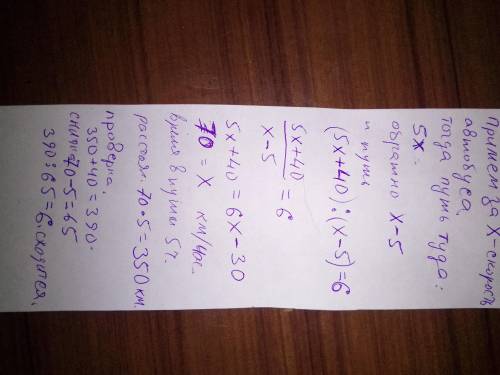 примем за X - скорость
автобуса,
тогда путь туда:
5x.
обратно x-5
и путь
(5x+40):(x-5)=6
5x+40
x-5
=6
5x+40=6x-30
70=x км/час.
время в пути 5ч.
расстоя. 70•5=350 км.
проверка,
350+40=390.
70-5=65
390:65=6. сходится,